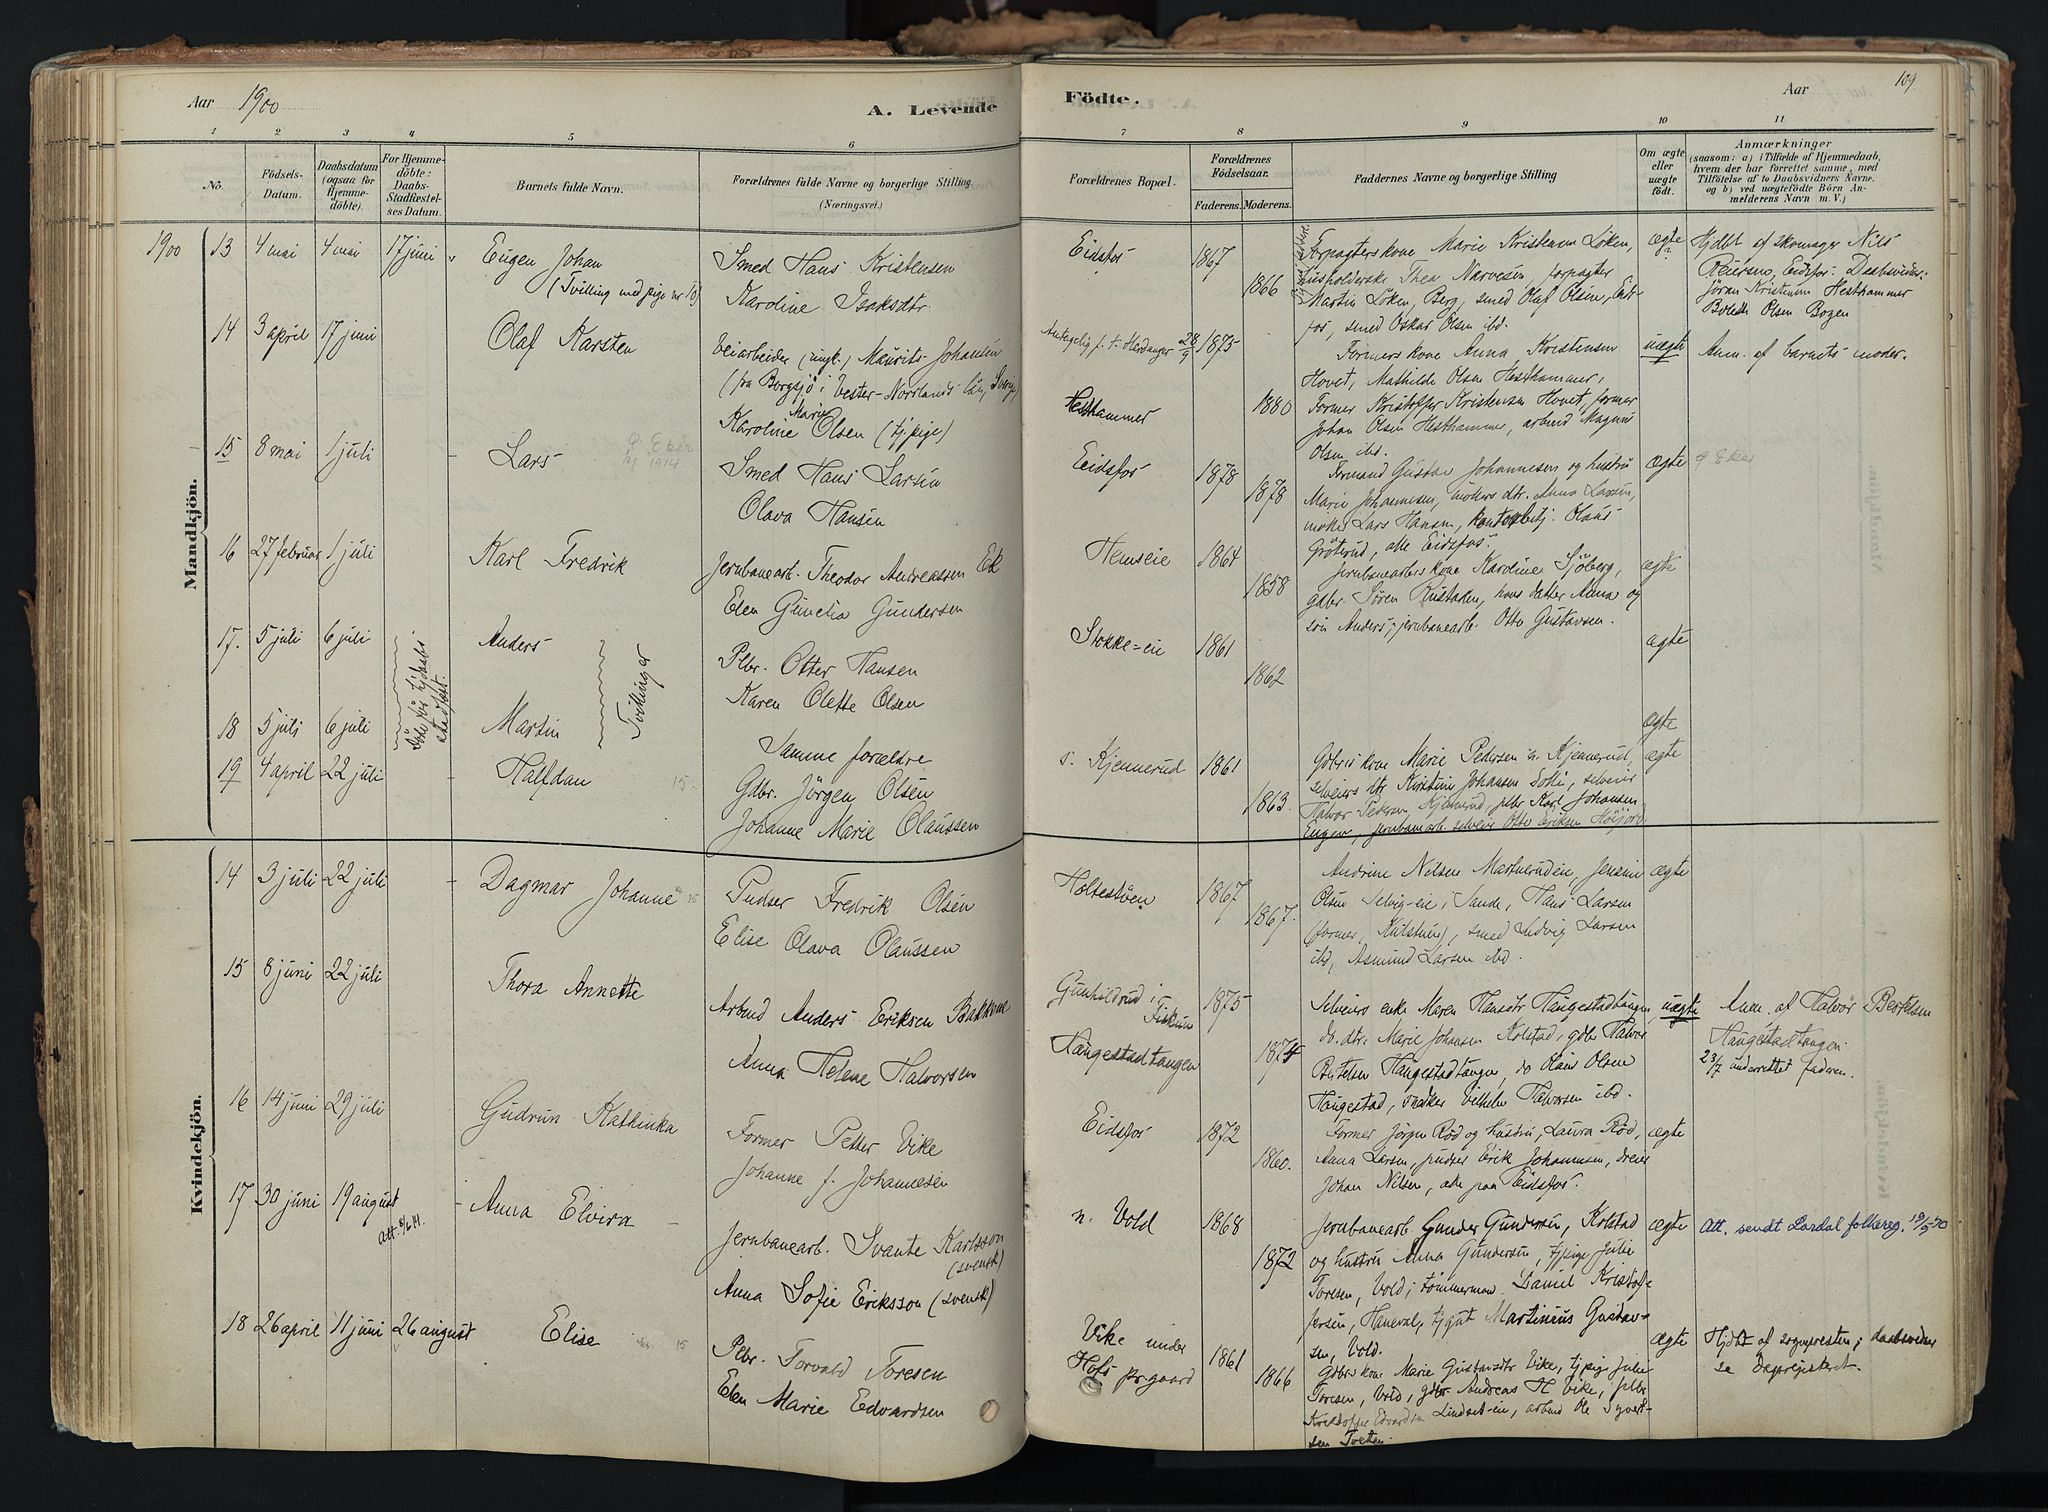 Aar 1900
A. Levende
Födte.
Aar
109
1 2 3 4 5 6 7 8 9 10 11
No.
Födsels-Datum.
Daabsdatum (ogsaa for Hjemme-döbte).
For Hjemme-döbte: Daabs-Stadfæstel-ses Datum.
Barnets fulde Navn.
Forældrenes fulde Navne og borgerlige Stilling
(Næringsvei.)
Forældrenes Bopæl.
Forældrenes Födselsaar.
Faderens. Moderens.
Faddernes Navne og borgerlige Stilling
Om ægte eller uægte födt.
Anmærkninger
(saasom: a) i Tilfælde af Hjemmedaab,
hvem der har forrettet samme, med
Tilföielse af to Daabsvidners Navne.
og b) ved uægtefödte Börn An-
melderens Navn m. V.)
Mandkjön.
1900 13 4 mai 4 mai 17 juni Eugen Johan
(Tvilling med pige nr 10)
Smed Hans Kristensen
Karoline Isaksdtr.
Eidsfos 1867 1866
Forpagterskone Marie Kristensen Löken,
Husholderske Thea Narvesen, forpagter
Martin Löken, Berg, smed Olaf Olsen, Eids-
fos, smed Oskar Olsen ibd.
ægte
Hjdbt af skomager Nils
Reiersen, Eidsfos. Daabsvidner:
Jöran Kristensen Hesthammer
Bolede Olsen Bogen
14 3 april 17 juni Olaf Karsten
Veiarbeider (ungk.) Maurits Johansen
(fra Borgsjö i Vester-Norrlands län, Sverige)
Karoline Marie Olsen (tj.pige)
Antagelig p. t. Hardanger 28/9 1875
Hesthammer 1880
Formers kone Anna Kristensen
Hovet, Mathilde Olsen Hesthammer,
Former Kristoffer Kristensen Hovet, former
Johan Olsen Hesthammer, arbmd Magnus
Olsen ibd.
uægte
Anm. af barnets moder.
15 8 mai 1 juli Lars
g. Eker
1914
Smed Hans Larsen
Olava Hansen
Eidsfos 1878 1878
Formand Gustav Johannesen og hustru
Marie Johannesen, moders dtr. Anna Larsen,
Lars Hansen, Olaus
Gröterud, alle Eidsfos.
ægte
g Eker
16 27 februar 1 juli Karl Fredrik
Jernbanearb. Theodor Andreassen Ek
Elen Gunelia Gundersen
Hemseie 1864 1858
Jernbanearbs kone Karoline Sjöberg,
gdbr. Sören Rustaden, hans datter Anna og
sön Anders, jernbanearb. Otto Gustavsen.
ægte
17. 5 juli 6 juli Anders
Döde för hjdaabs
stadfæst.
Tvillinger
Plbr. Otter Hansen
Karen Olette Olsen
Stokke-eie 1861 1862
ægte
18 5 juli 6 juli Martin
Samme forældre
ægte
19 4 april 22 juli Halfdan 15.
Gdbr. Jörgen Olsen
Johanne Marie Olaussen
s. Kjennerud 1861 1863.
Gdbrs kone Marie Pedersen n. Kjennerud,
selveiers dtr Kristine Johansen Solli, selveier
Halvor Pedersen Kjennerud, plbr Karl Johansen
Engen, jernbanearb. selveier Otto Eriksen
ægte
Kvindekjön.
14 3 juli 22 juli Dagmar Johanne 15
Pudser Fredrik Olsen
Elise Olava Olaussen
Holtestöen 1867 1867.
Andrine Nilsen Martneruden, Jensine
Olsen Selvig-eie i Sande, Hans Larsen
(former, Kulstur), smed Ludvig Larsen
ibd, Asmund Larsen ibd.
ægte
15 8 juni 22 juli Thora Annette
Arbmd Anders Eriksen Bakkene
Anna Helene Halvorsen
Gunhildrud i
Fiskum 1875
Haugestadtangen 1874
Selveiers enke Maren Hansdtr Haugestadtangen
do. dtr. Marie Johansen Kolstad, gdbr Halvor
Bertelsen Haugestadtangen, do Olaus Olsen
Haugestad, Vilhelm Halvorsen ibd.
uægte
Anm. af Halvor Bertelsen
Haugestadtangen.
23/7 underrettet faderen.
16 14 juni 29 juli Gudrun Kathinka
Former Petter Vike
Johanne f. Johannesen
Eidsfos 1872 1860.
Former Jörgen Röd og hustru, Laura Röd,
Anna Larsen, pudser Erik Johannesen, dreier
Johan Nilsen, alle paa Eidsfos.
ægte
17 30 juni 19 august Anna Elvira
Att. 8/6 14.
Jernbanearb. Svante Karlsson
(svensk)
Anna Sofie Eriksson (svensk)
n. Vold 1868 1872
Jernbanearb Gunder Gundersen, Kolstad
og hustru Anna Gundersen, tj.pige Julie
Toresen, Vold, tömmermand Daniel Kristof-
fersen, Haneval, tj.gut Martinius Gustav-
sen, Vold.
ægte
Att. sendt Lardal folkereg. 19/9 70
18 26 april 11 juni 26 august Elise 15
Plbr. Torvald Toresen
Elen Marie Edvardsen
Vike under
Hofs prgaard 1861 1866
Gdbrs kone Marie Gustavsdtr Vike, tj.pige Julie
Toresen, Vold, gdbr Andreas H Vike, plbr
Kristoffer Edvardsen Lindset-eie, arbmd Ole Syvert-
sen Tveten
ægte
Hjdbt af sognepresten; daabsvidner
se Dagregisteret.